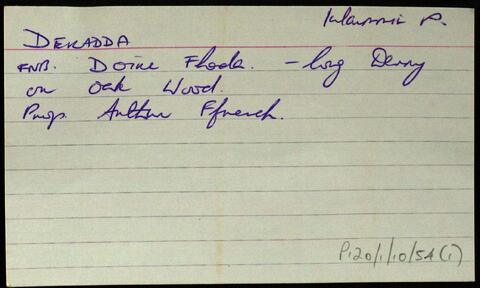 Kilcummin P.
DERADDA
FNB. Doire Fhada. - long Derry
or Oak Wood.
Prop. Arthur Ffrench.
P120/1/10/54(1)